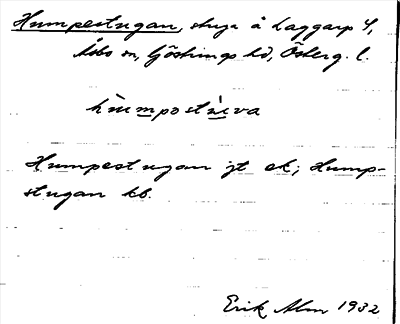 Humpestugan, stuga å Laggarp 4,
Åsbo sn, Göstrings hd, Österg. l.
hùmpostùva
Humpestugan jt ek; Hump-
stugan kb.
Erik Alm 1932